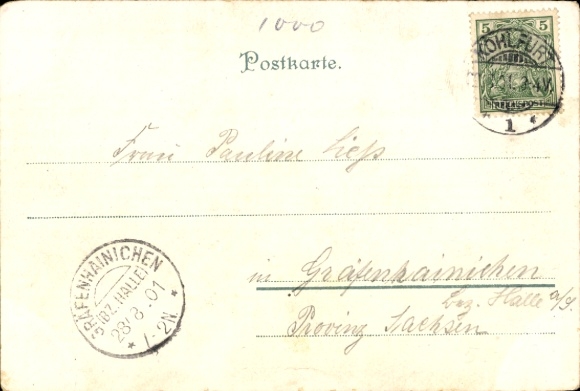 1000
Postkarte.
5 5
KOHLFURT
1
Frau Pauline
in Gräfenhainichen
Bez. Halle a/S.
Provinz Sachsen
GRÄFENHAINICHEN
(BZ. HALLE)
28.8.01
1-2N.